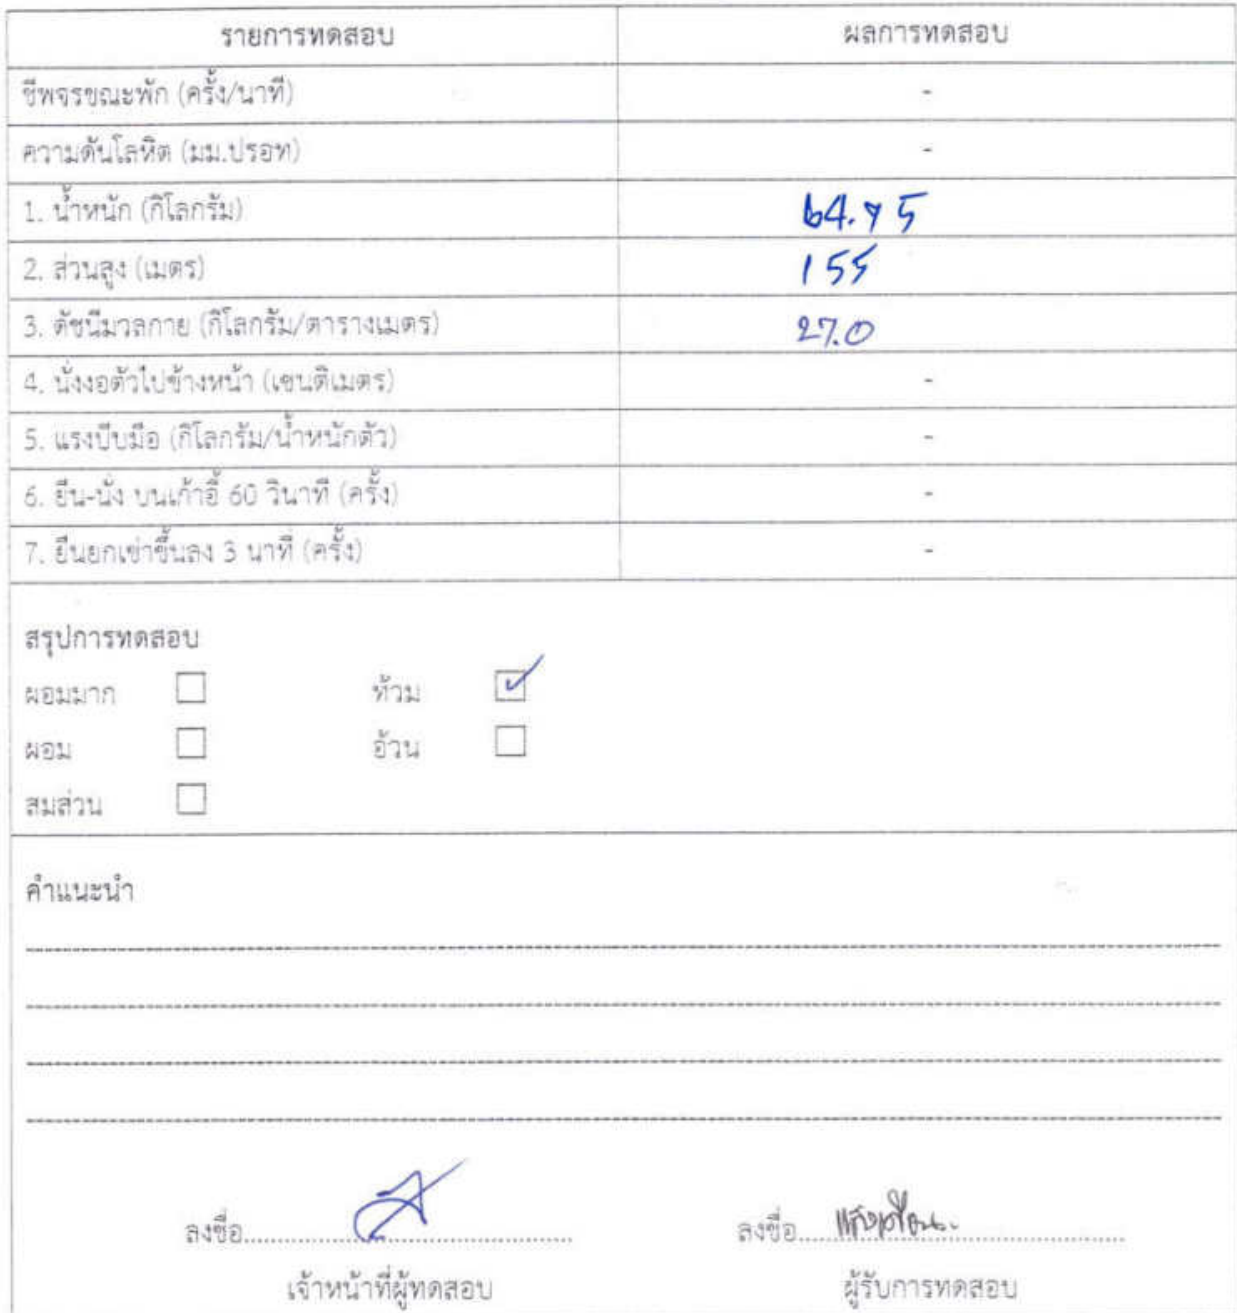 รายการทดสอบ ผลการทดสอบ
ชีพจรขณะพัก (ครั้ง/นาที) -
ความดันโลหิต (มม.ปรอท) -
1. น้ำหนัก (กิโลกรัม) 64.75
2. ส่วนสูง (เมตร) 155
3. ดัชนีมวลกาย (กิโลกรัม/ตารางเมตร) 27.0
4. นั่งงอตัวไปข้างหน้า (เซนติเมตร) -
5. แรงบีบมือ (กิโลกรัม/น้ำหนักตัว) -
6. ยืน-นั่ง บนเก้าอี้ 60 วินาที (ครั้ง) -
7. ยืนยกเข่าขึ้นลง 3 นาที (ครั้ง) -
สรุปการทดสอบ
ผอมมาก ท้วม
ผอม อ้วน
สมส่วน
คำแนะนำ
ลงชื่อ ลงชื่อ
เจ้าหน้าที่ผู้ทดสอบ ผู้รับการทดสอบ